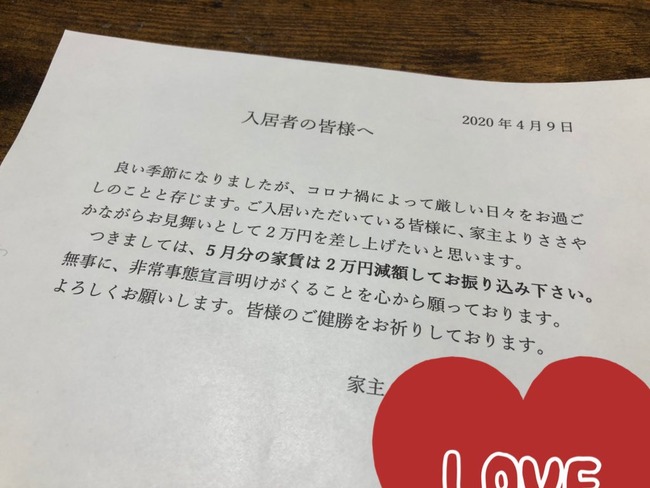 2020年4月9日
入居者の皆様へ
良い季節になりましたが、コロナ禍によって厳しい日々をお過ご
しのことと存じます。ご入居いただいている皆様に、家主よりささや
かながらお見舞いとして2万円を差し上げたいと思います。
つきましては、5月分の家賃は2万円減額してお振り込み下さい。
無事に、非常事態宣言明けがくることを心から願っております。
よろしくお願いします。皆様のご健勝をお祈りしております。
家主
LOVE